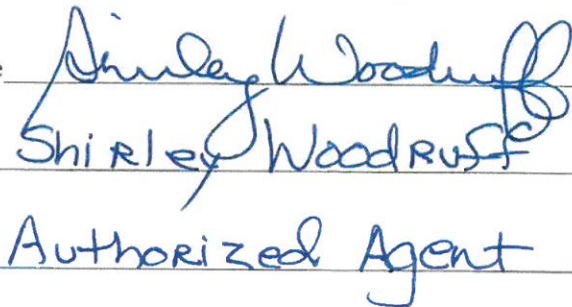 Shirley Woodruff
Shirley Woodruff
Authorized Agent